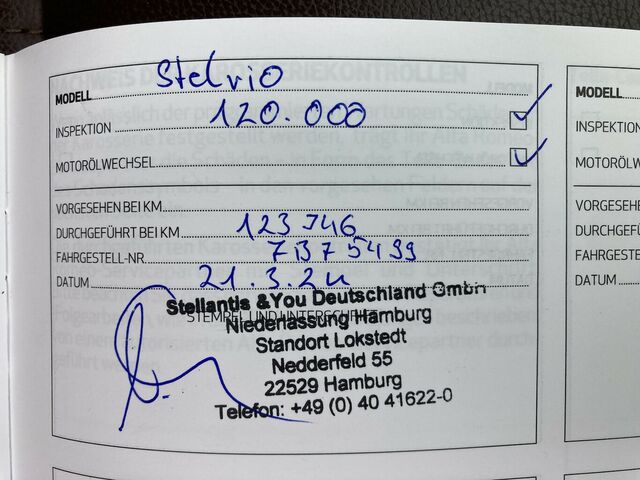 MODELL Stelvio
INSPEKTION 120.000
MOTORÖLWECHSEL
VORGESEHEN BEI KM
DURCHGEFÜHRT BEI KM 123 746
FAHRGESTELL-NR. 7B75499
DATUM 21.3.24
STEMPEL UND UNTERSCHRIFT
Stellantis &You Deutschland GmbH
Niederlassung Hamburg
Standort Lokstedt
Nedderfeld 55
22529 Hamburg
Telefon: +49 (0) 40 41622-0
MODELL
INSPEKTION
MOTORÖLW
VORGESEHE
DURCHGEFÜ
FAHRGESTEL
DATUM